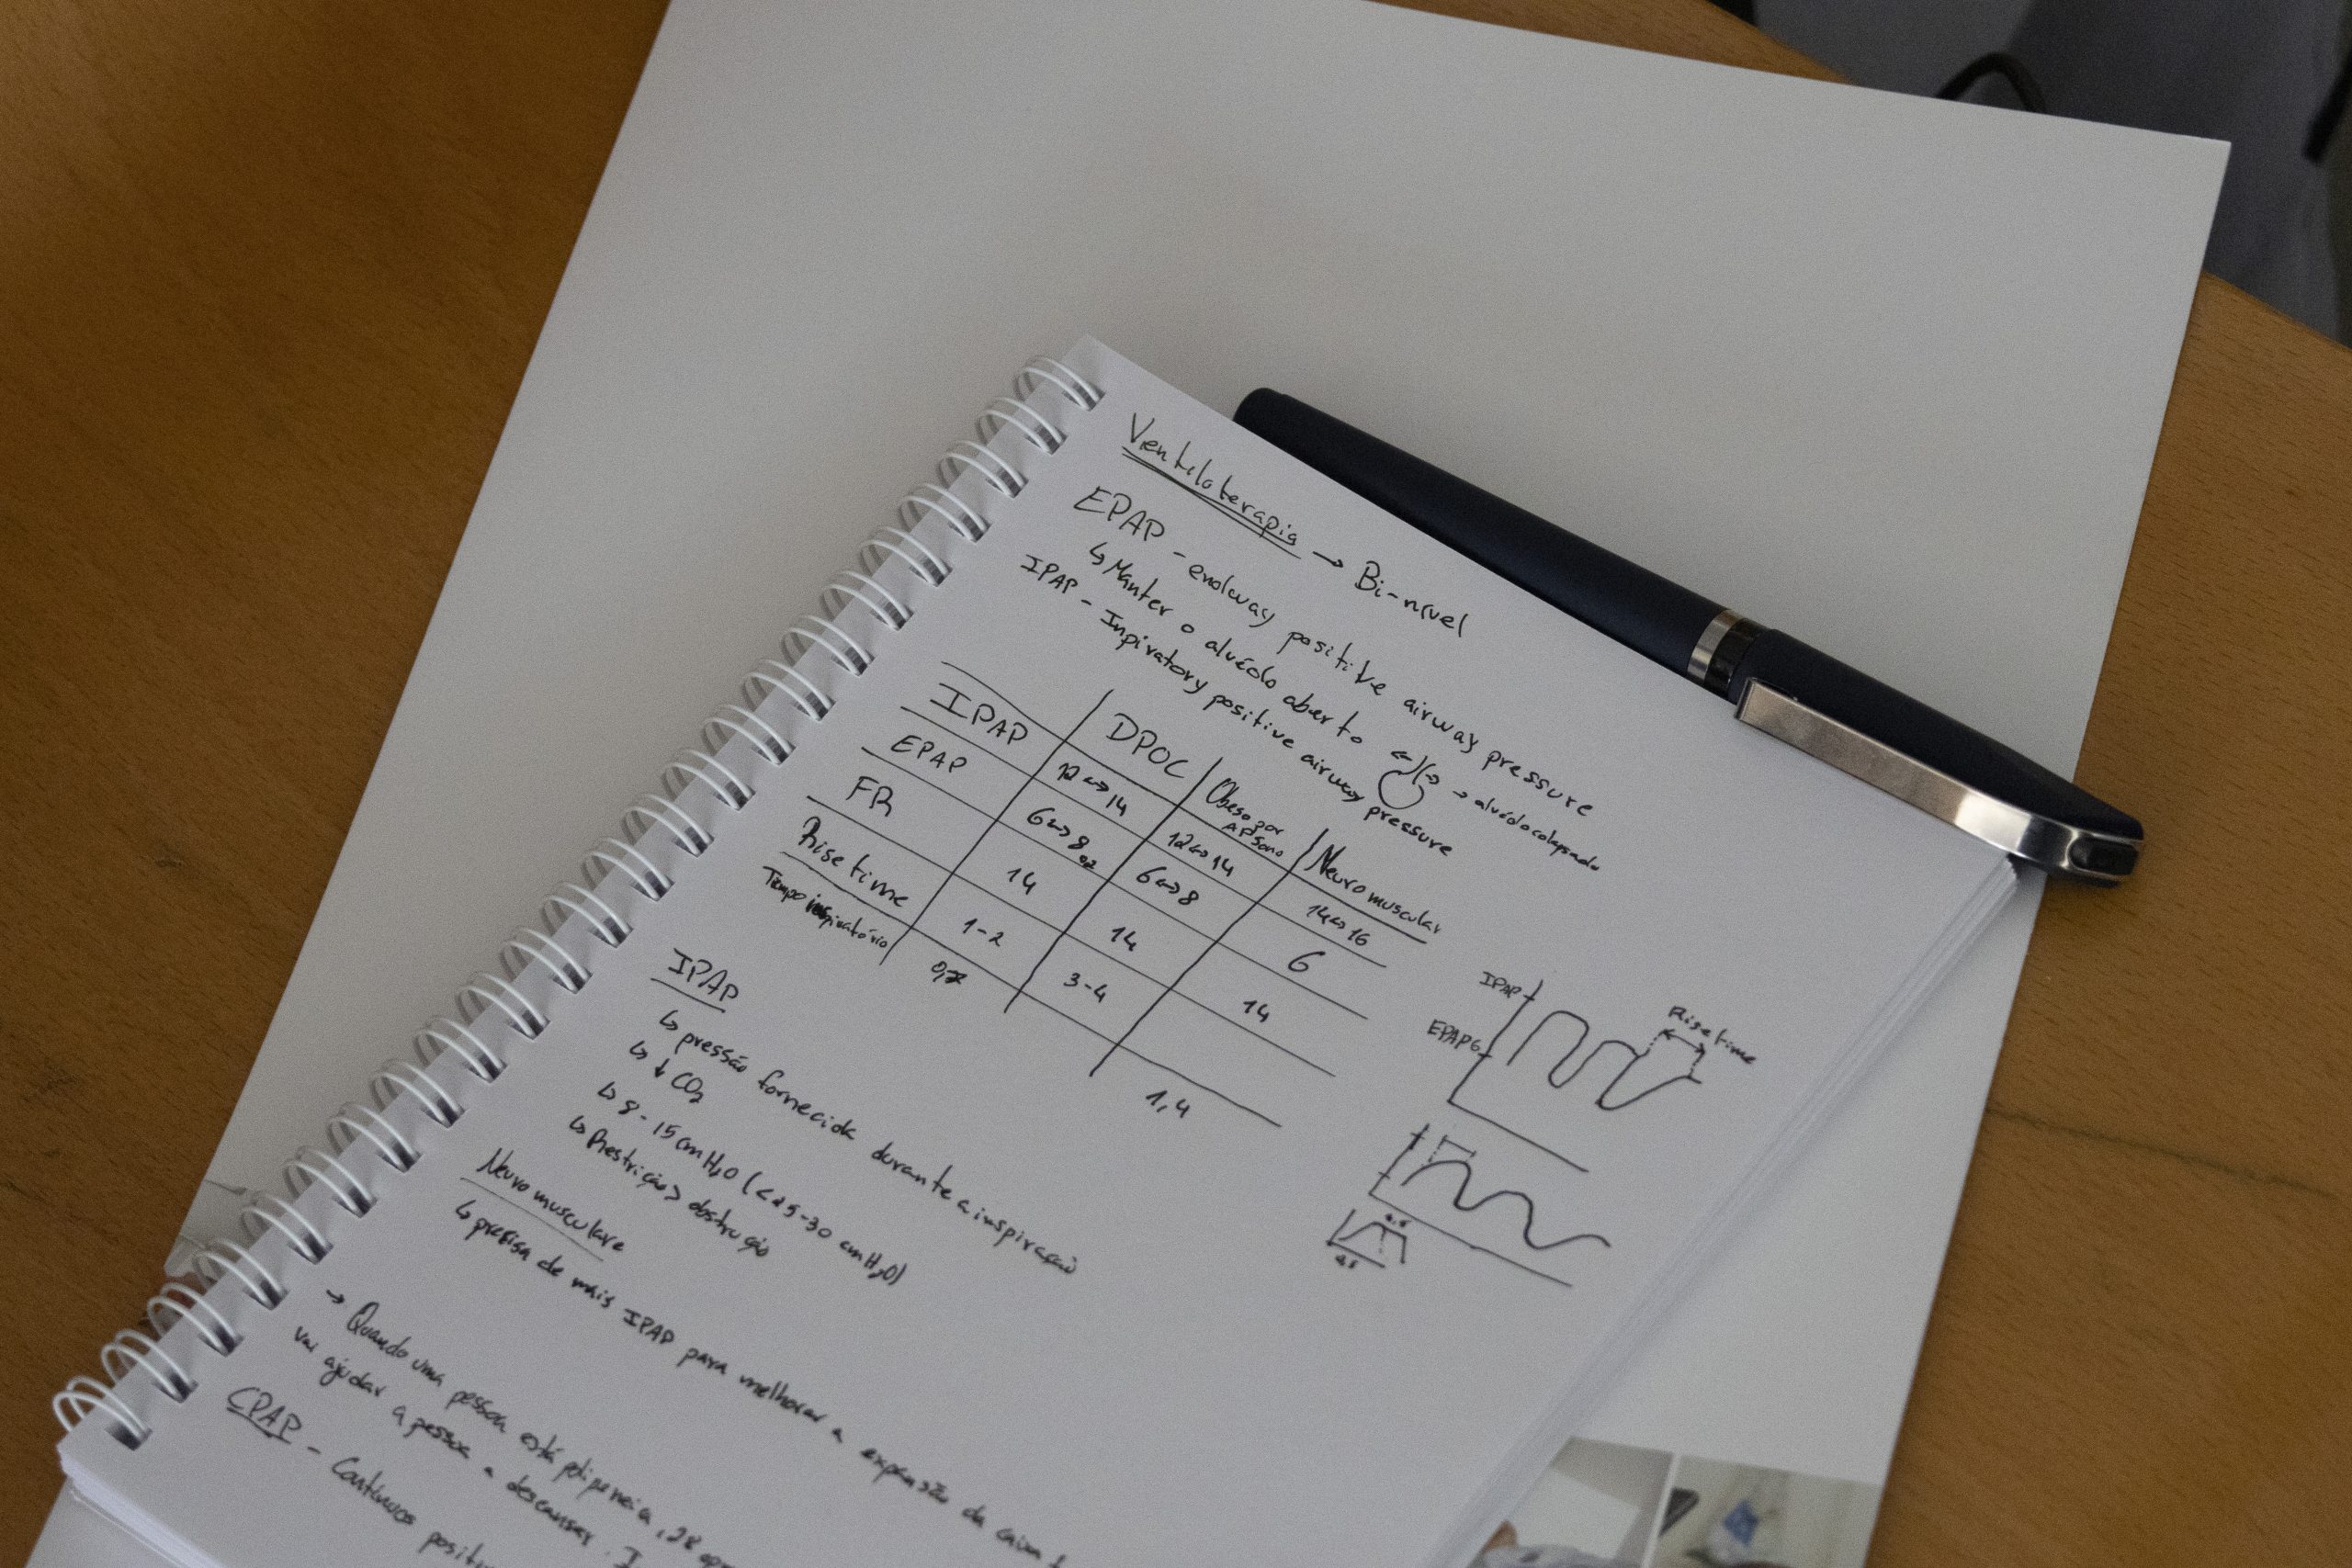 Ventiloterapia → Bi-nível
EPAP - endway positive airway pressure
↳ Manter o alvéolo aberto → alvéolo colapsado
IPAP - Inpiratory positive airway pressure
DPOC Obeso por AP Sono Neuromuscular
IPAP 12↔14 12↔14 14↔16
EPAP 6↔8 6↔8 6
FR 14 14 14
Rise time 1-2 3-4
Tempo inspiratório 1,4
IPAP
↳ pressão fornecida durante a inspiração
↳ ↓ CO2
↳ 8-15 cmH2O (<25-30 cmH2O)
↳ Restrição > obstrução
Neuromusculare
↳ precisa de mais IPAP para melhorar a expansão da caixa
→ Quando uma pessoa está polipneica, 28
vai ajudar a pessoa a descansar.
CPAP - Continuos
IPAP
EPAP 6
Rise time